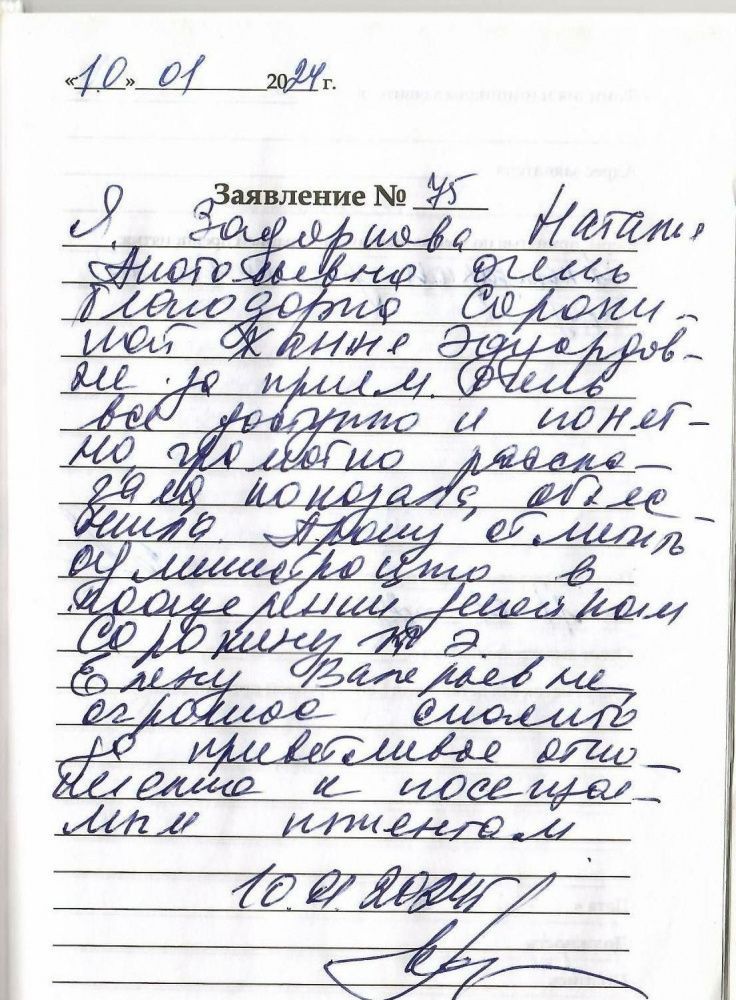 «10» 01 2024 г.
Заявление № 75
Я Задорнова Наталия
Анатольевна очень
благодарна Сороки-
ной Жанне Эдуардов-
не за прием. Очень
все доступно и понят-
но, грамотно расска-
зала показала, объяс
нила. Прошу отметить
администрацию в
поощерении
Сорокину Ж Э.
Елену Валерьевне
огромное спасибо
за приветливое отно-
шение к посещае-
мым пациентам
10.01.2024